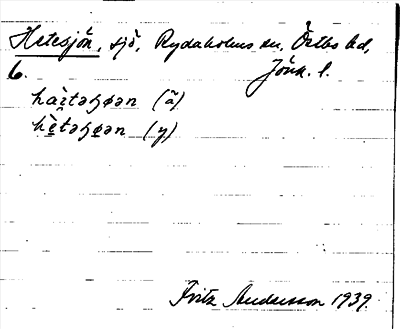 Hetesjön, sjö, Rydaholms sn, Östbo hd,
6. Jönk. l.
haìtəɧøən (ä)
hètəɧøən (y)
Fritz Andersson 1939.